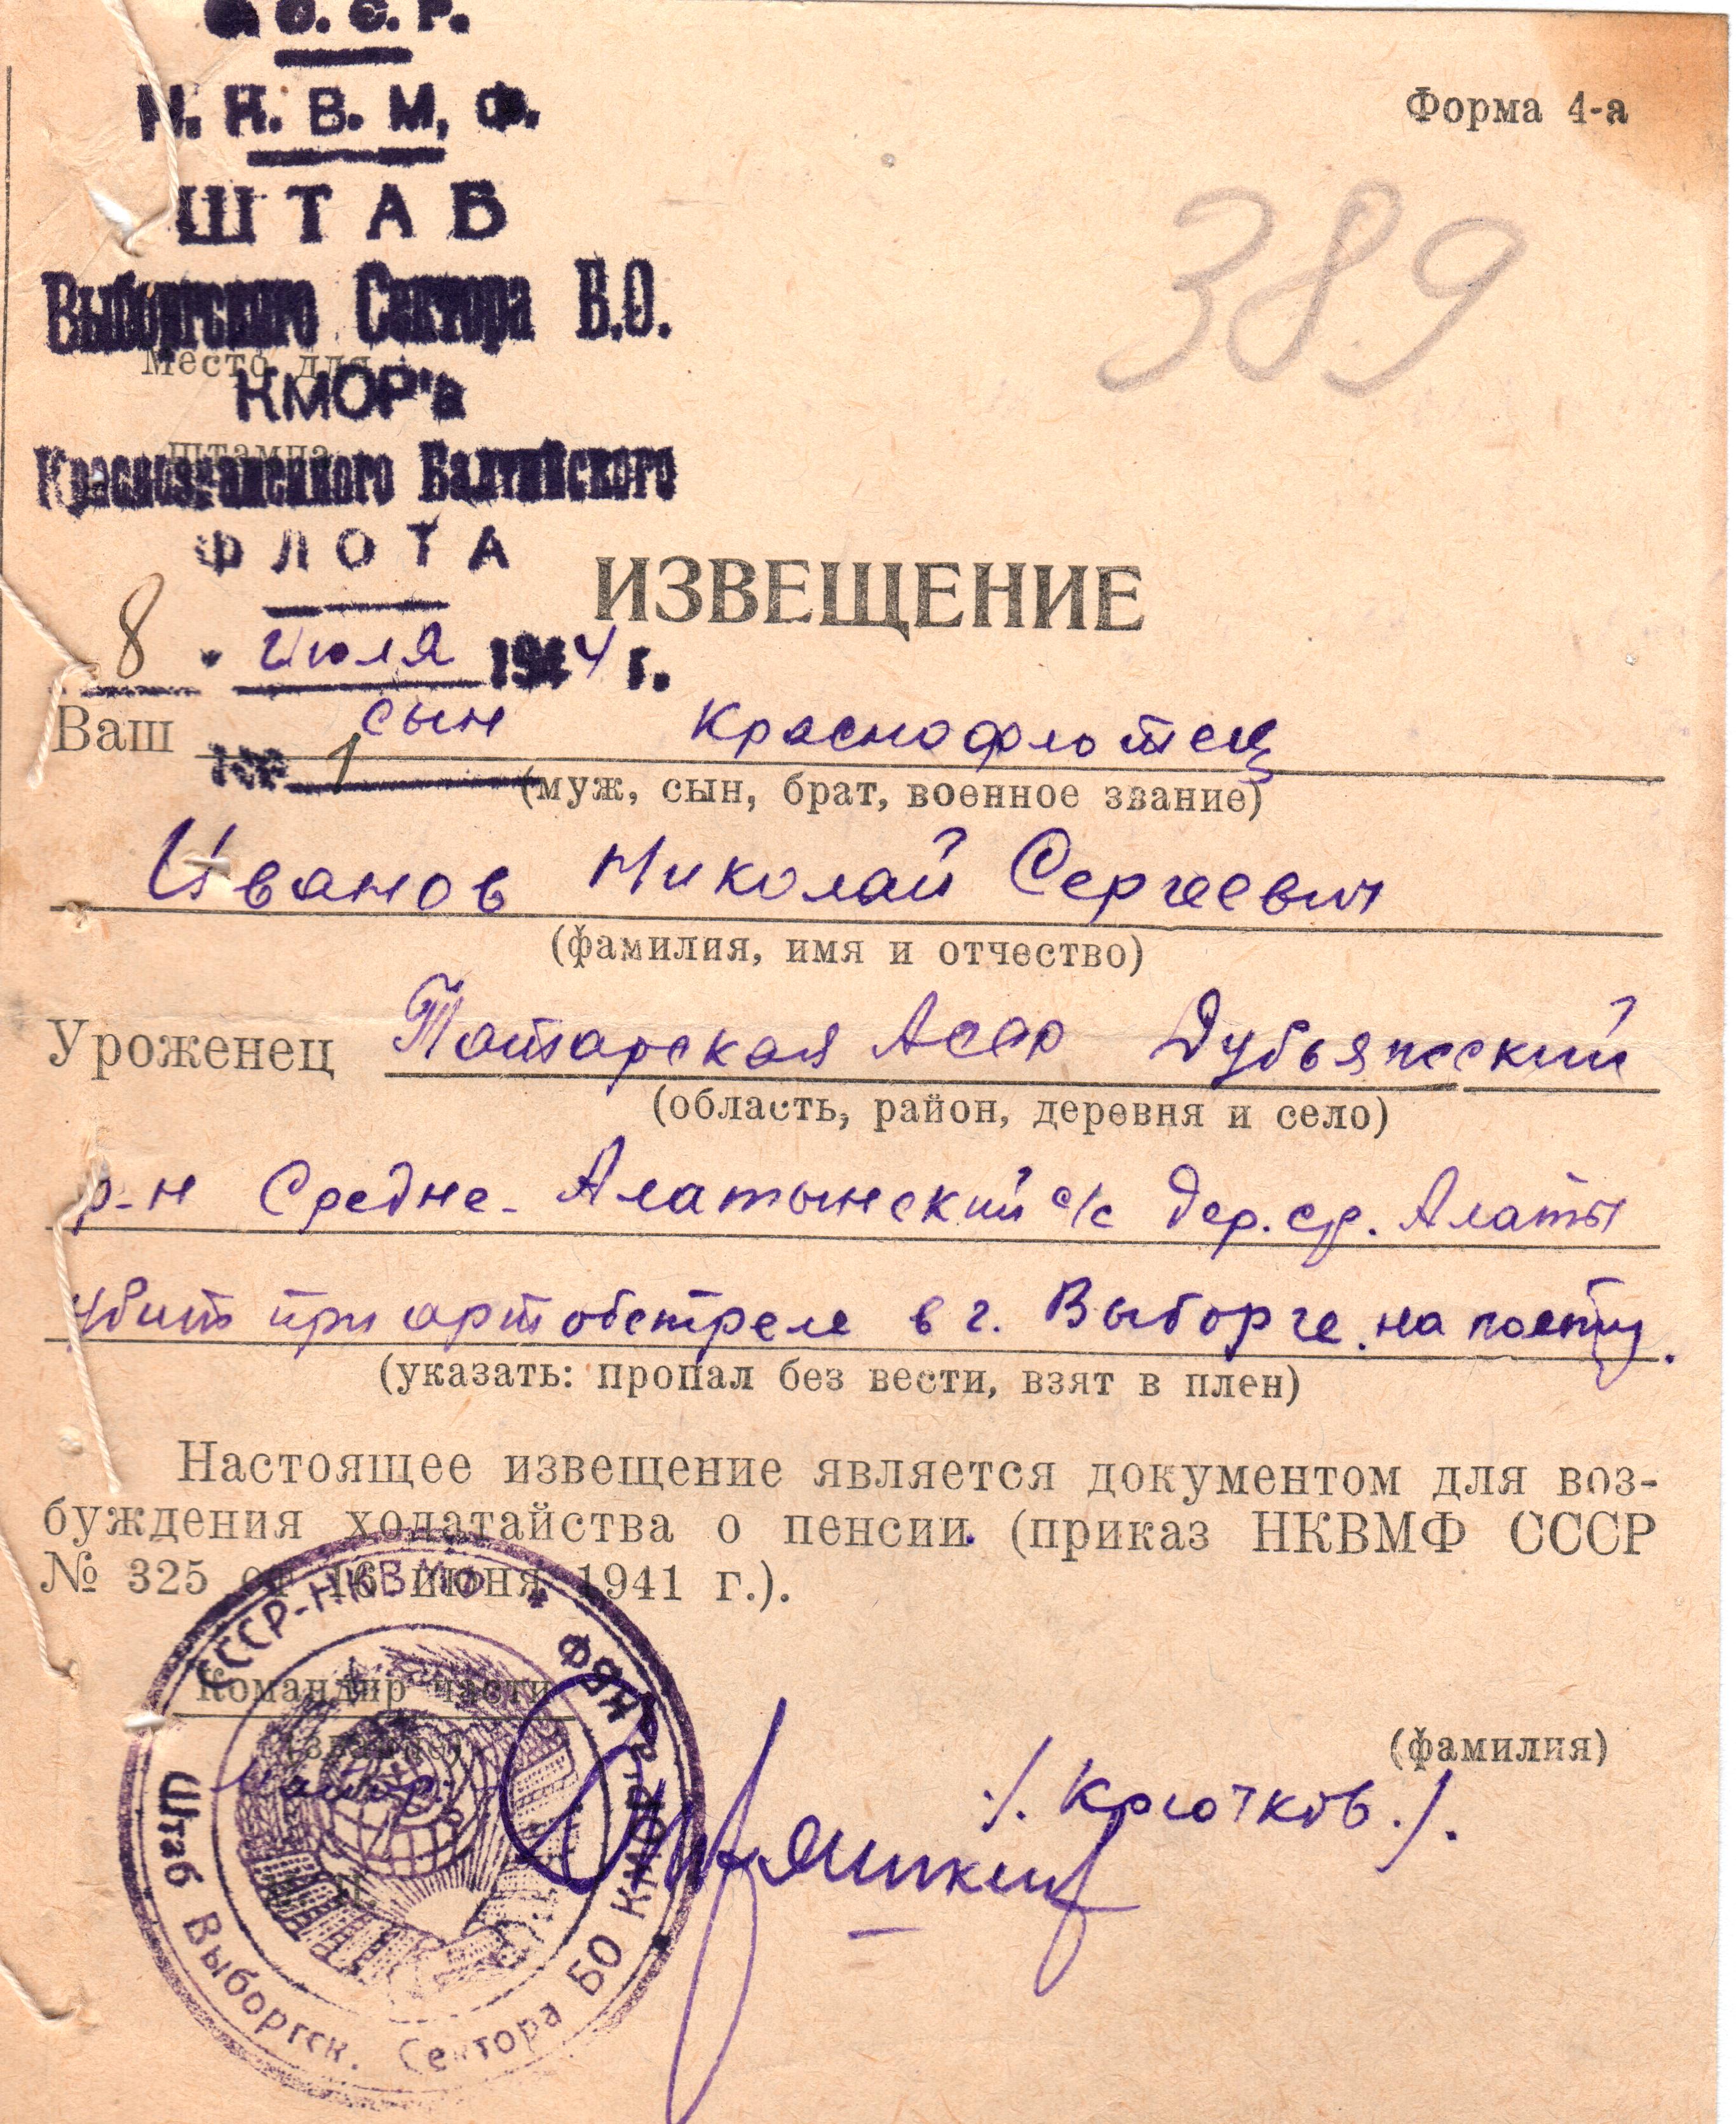 С. С. Р.
Форма 4-а
Н. К. В. М. Ф.
389
ШТАБ
Выборгского Сектора Б.О.
Место для
КМОР'а
штампа
Краснознаменного Балтийского
ФЛОТА
ИЗВЕЩЕНИЕ
8 " июля 1944 г.
Ваш сын краснофлотец
№ 1
(муж, сын, брат, военное звание)
Иванов Николай Сергеевич
(фамилия, имя и отчество)
Уроженец Татарская АССР Дубьязский
(область, район, деревня и село)
р-н Средне-Алатынский с/с дер. ср. Алаты
убит при артобстреле в г. Выборге на посту.
(указать: пропал без вести, взят в плен)
Настоящее извещение является документом для воз-
буждения ходатайства о пенсии (приказ НКВМФ СССР
№ 325 от 16 июня 1941 г.).
СССР-НКВМФ
Штаб Выборгск. Сектора БО КМОР'а КБФ
Командир части
(звание)
(фамилия)
майор
/. Крючков ./.